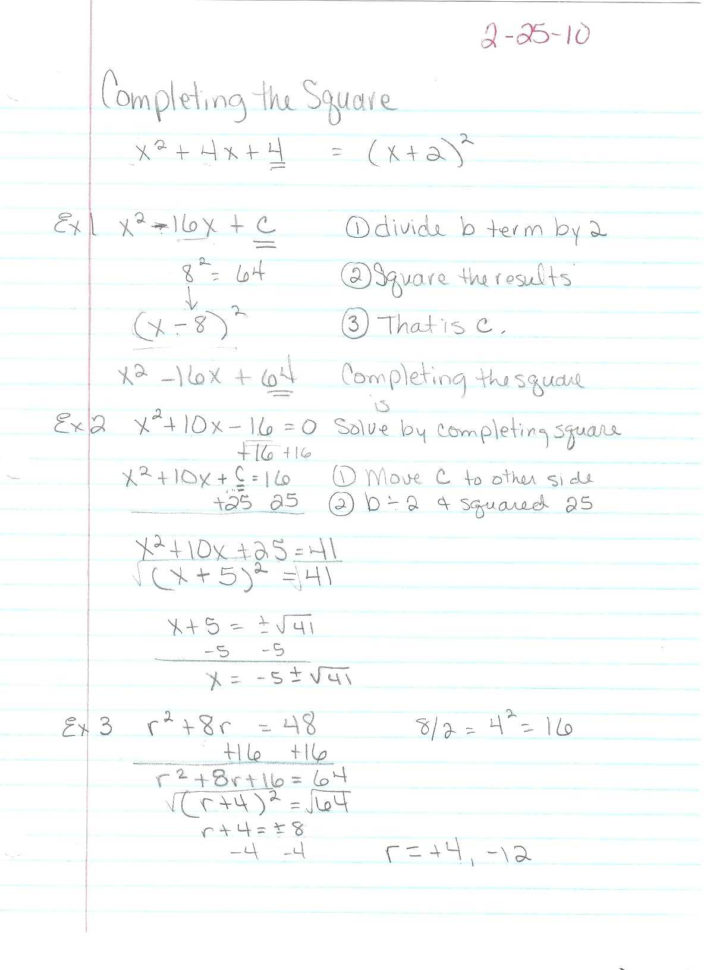 2-25-10
Completing the Square
x² + 4x + 4 = (x+2)²
Ex 1 x² - 16x + C ① divide b term by 2
8² = 64 ② Square the results
↓
(x - 8)² ③ That is C.
x² - 16x + 64 Completing the square
is
Ex 2 x² + 10x - 16 = 0 Solve by completing square
+16 +16
x² + 10x + C = 16 ① Move C to other side
+25 25 ② b ÷ 2 & squared 25
x² + 10x + 25 = 41
√(x + 5)² = √41
x + 5 = ± √41
-5 -5
x = -5 ± √41
Ex 3 r² + 8r = 48 8/2 = 4² = 16
+16 +16
r² + 8r + 16 = 64
√(r+4)² = √64
r + 4 = ± 8
-4 -4 r = +4, -12